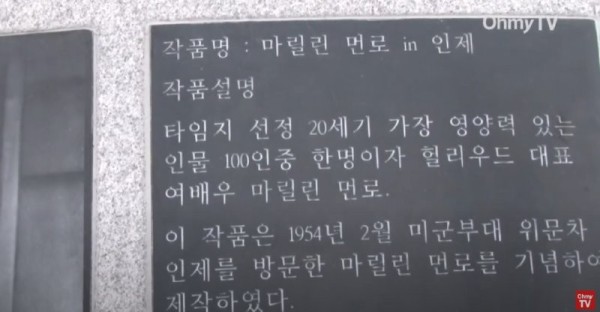 OhmyTV
작품명 : 마릴린 먼로 in 인제
작품설명
타임지 선정 20세기 가장 영양력 있는
인물 100인중 한명이자 헐리우드 대표
여배우 마릴린 먼로.
이 작품은 1954년 2월 미군부대 위문차
인제를 방문한 마릴린 먼로를 기념하여
제작하였다.
Ohmy
TV